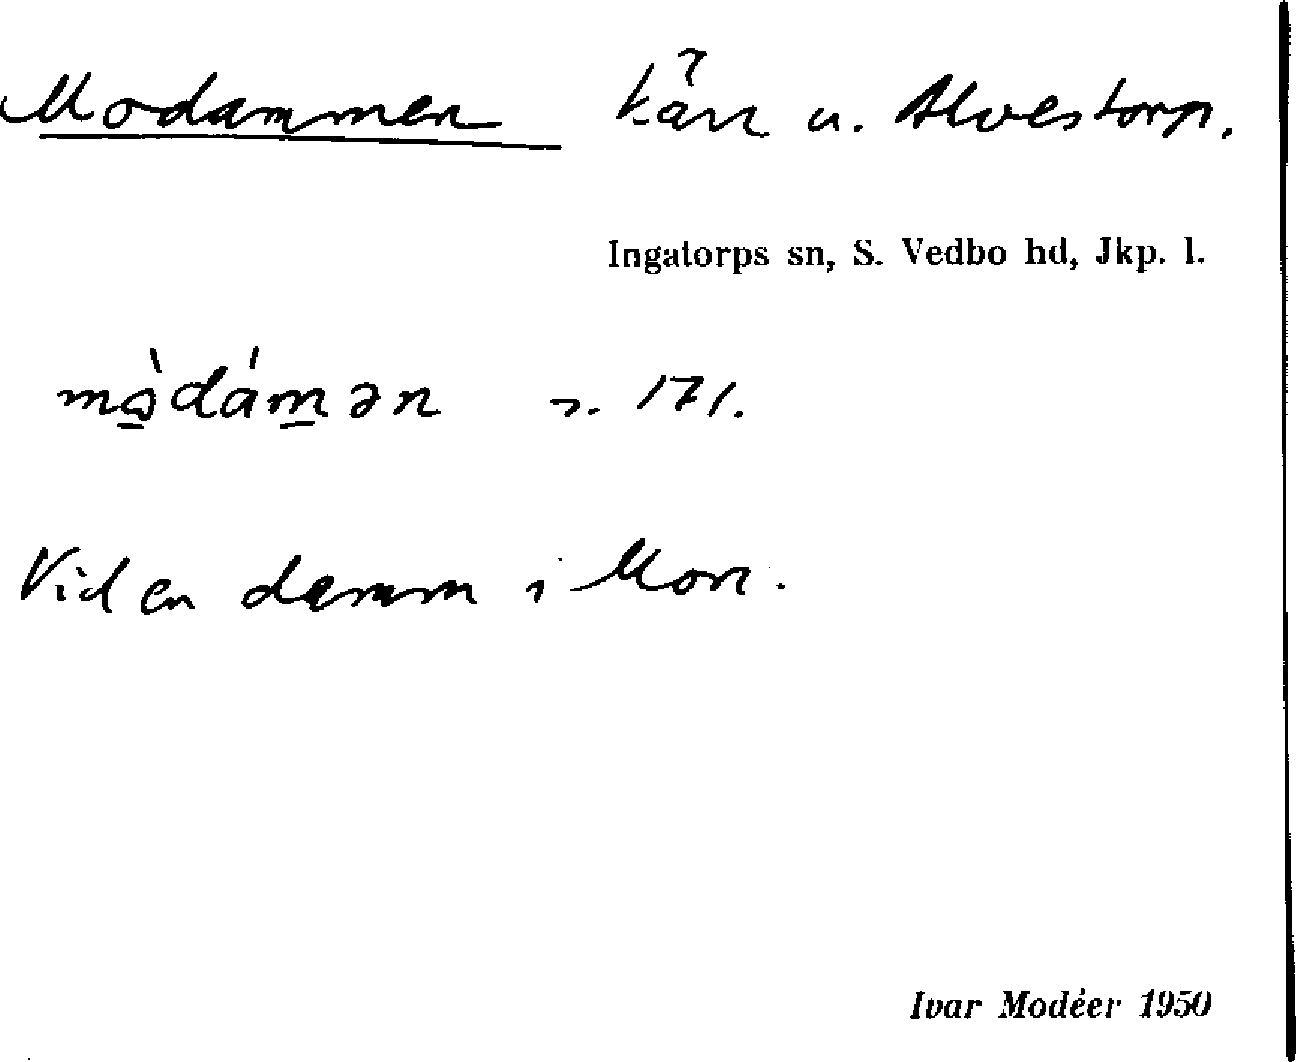 Modammen kärr u. Alvestorp.
Ingatorps sn, S. Vedbo hd, Jkp. l.
mɷ̀dám̲ən s. 171.
Vid en damm i Mon.
Ivar Modéer 1950